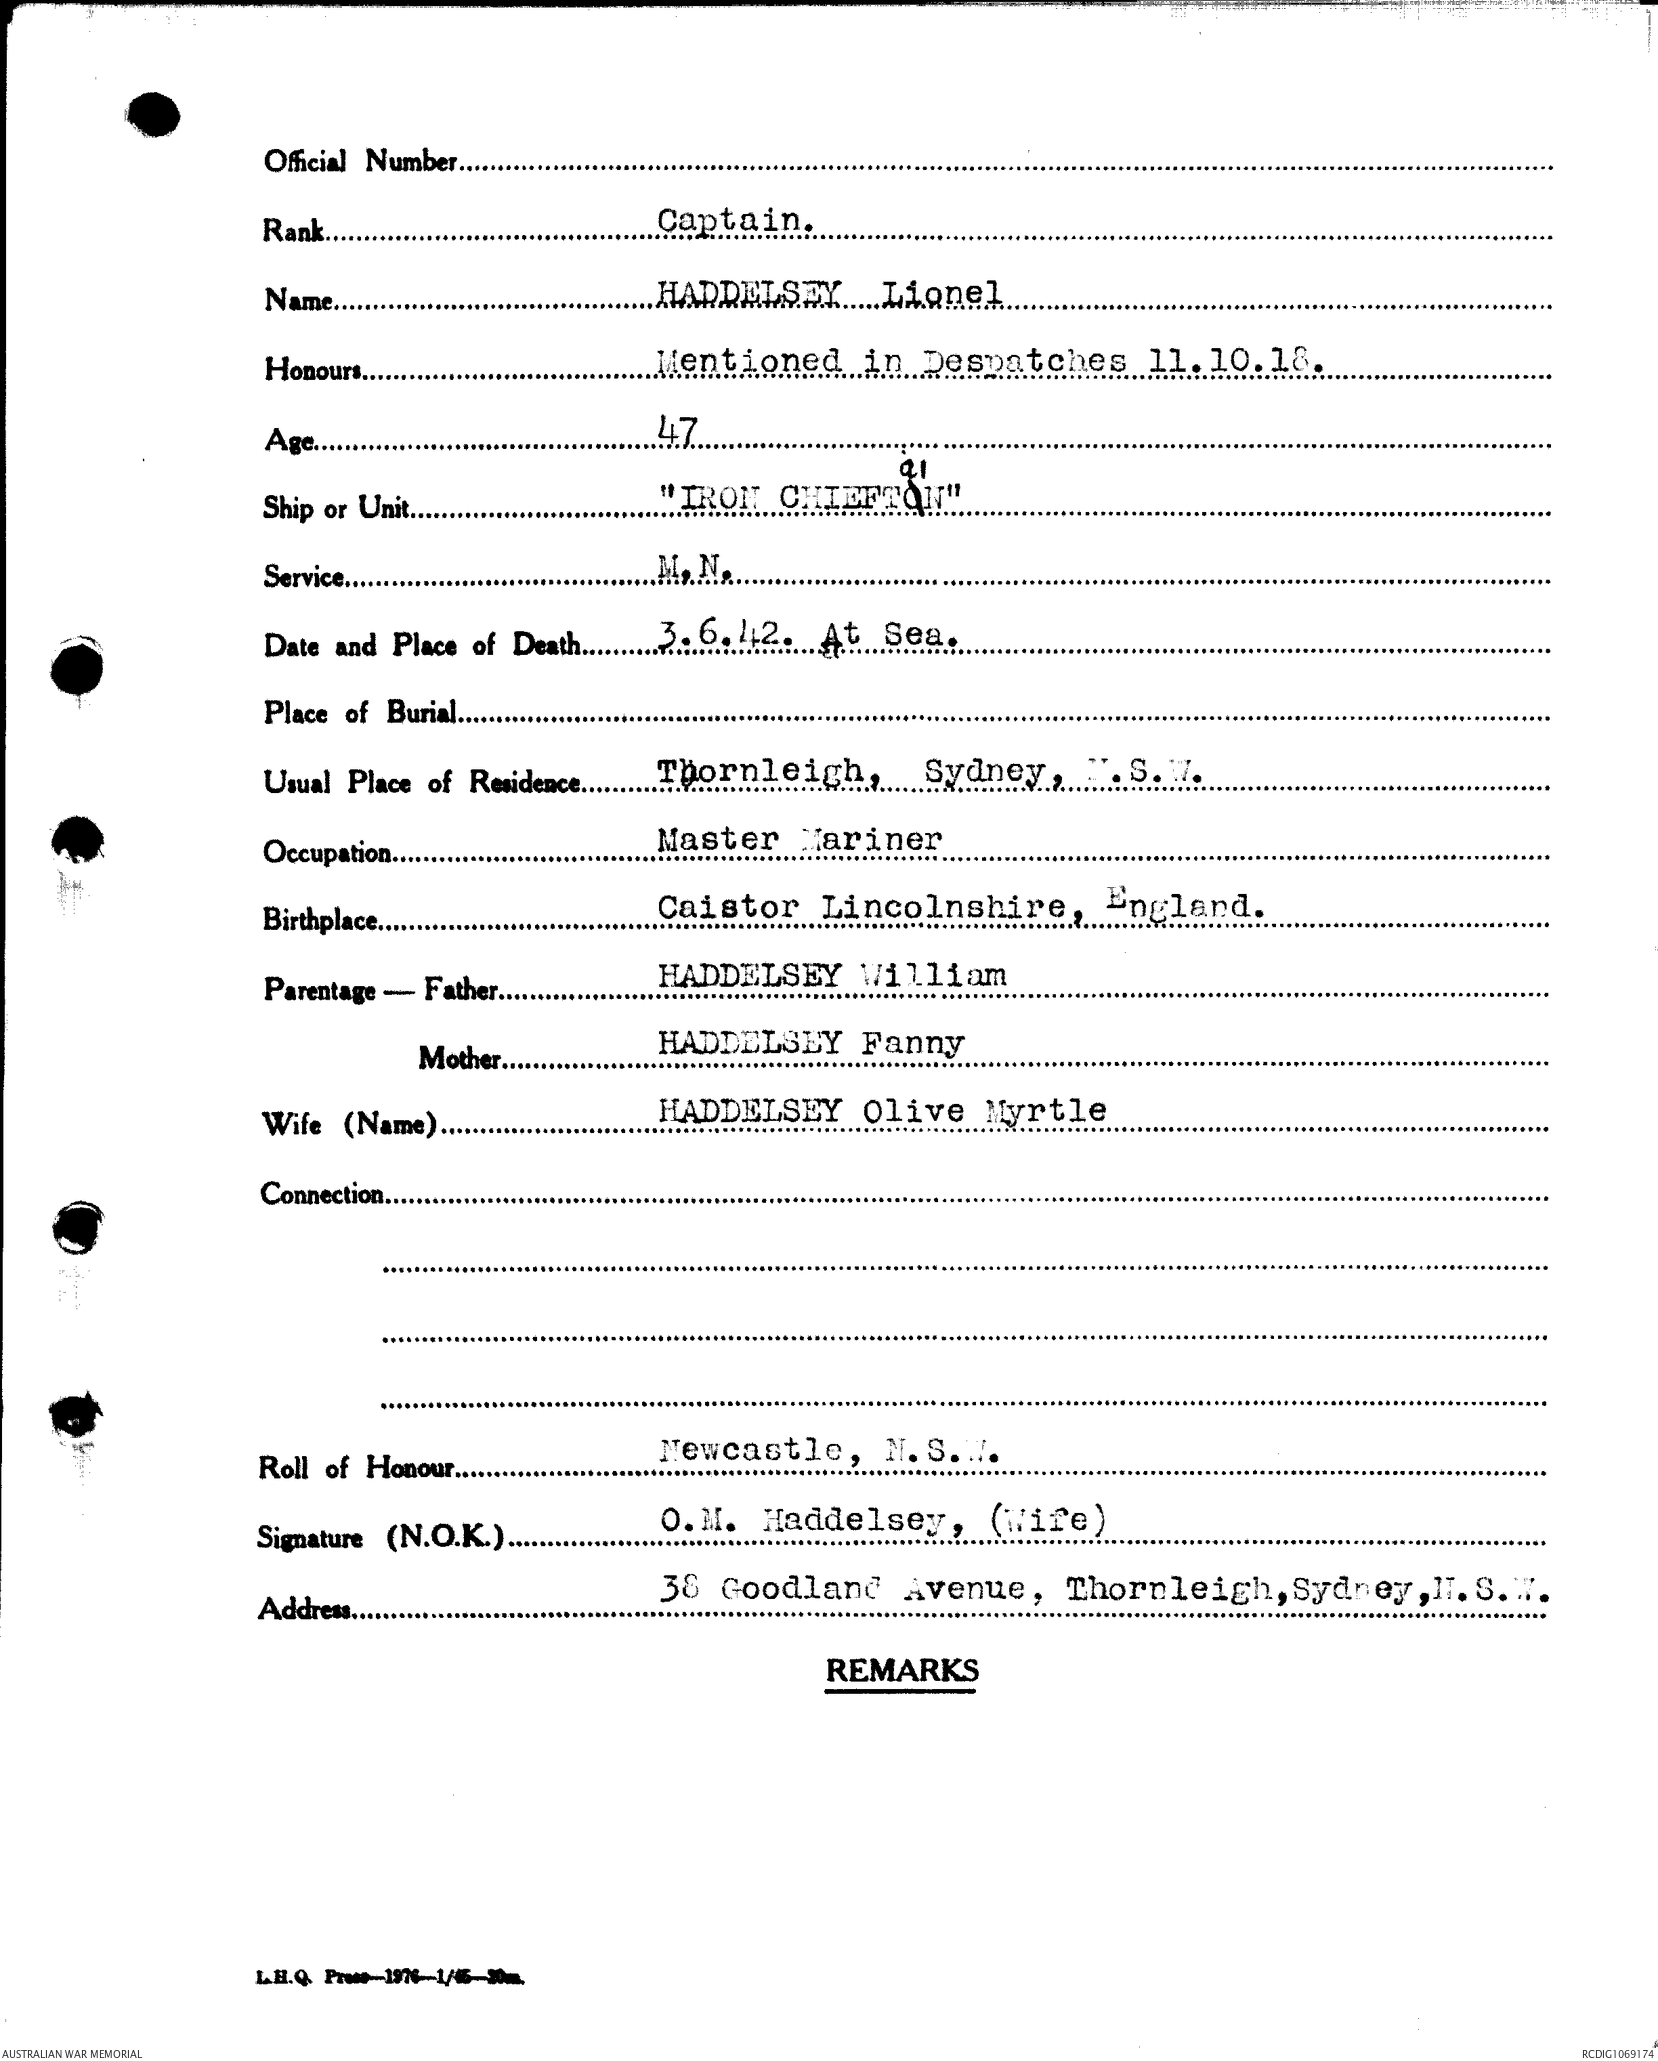 Official Number
Rank Captain.
Name HADDELSEY Lionel
Honours Mentioned in Despatches 11.10.18.
Age 47
ai
Ship or Unit "IRON CHIEFTON"
Service M.N.
Date and Place of Death 3.6.42. At Sea.
Place of Burial
Usual Place of Residence Thornleigh, Sydney, N.S.W.
Occupation Master Mariner
Birthplace Caistor Lincolnshire, England.
Parentage — Father HADDELSEY William
Mother HADDELSEY Fanny
Wife (Name) HADDELSEY Olive Myrtle
Connection
Roll of Honour Newcastle, N.S.W.
Signature (N.O.K.) O.M. Haddelsey, (Wife)
Address 38 Goodland Avenue, Thornleigh, Sydney, N.S.W.
REMARKS
L.H.Q. Press—1976—1/45—20m.
AUSTRALIAN WAR MEMORIAL
RCDIG1069174